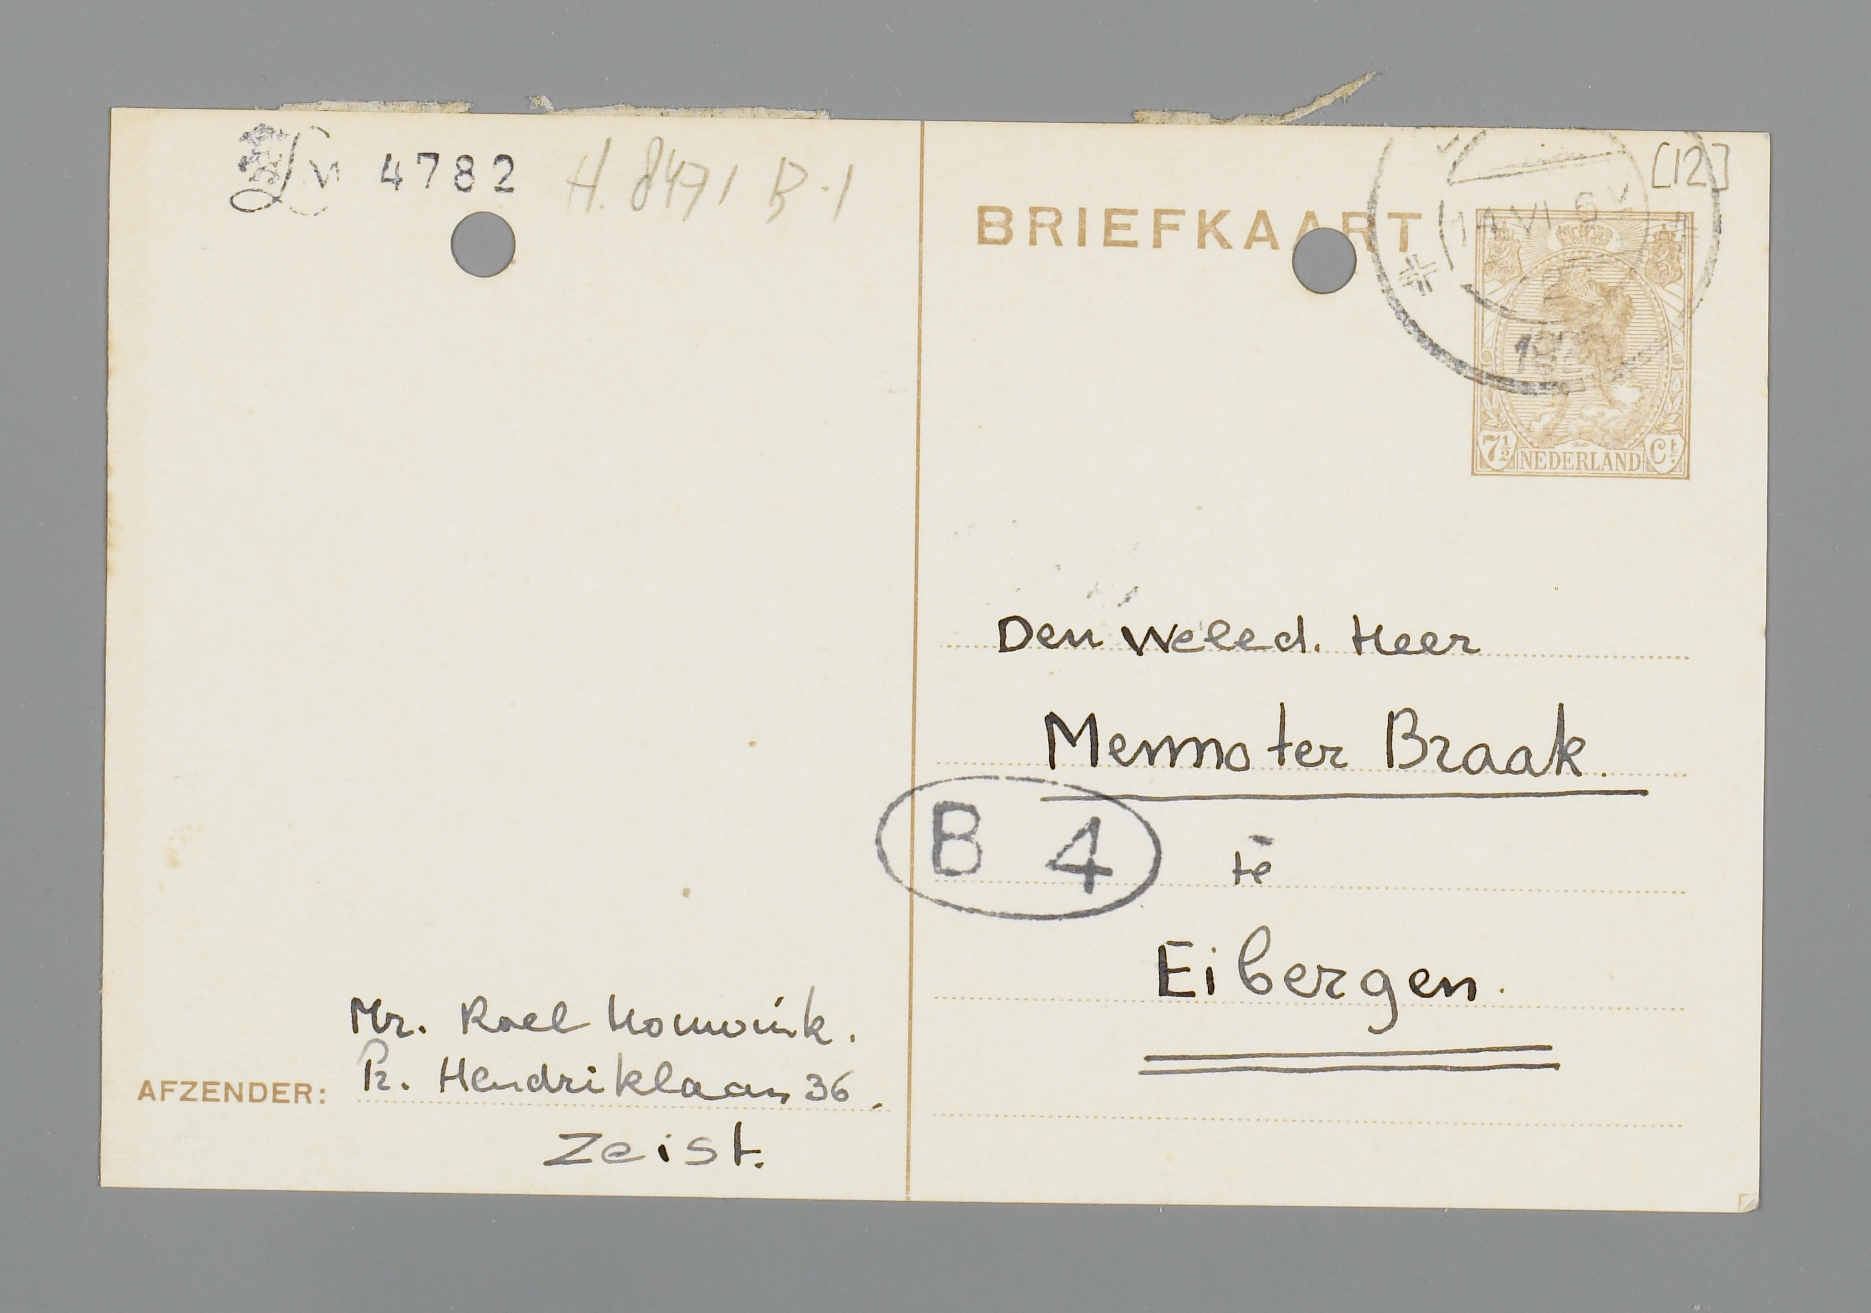 4782 H. 8471 B-1
[12]
BRIEFKAART
14 VI 6 V
7½ NEDERLAND Ct
Den Weled. Heer
Menno ter Braak.
B 4
te
Eibergen.
Mr. Roel Houwink.
AFZENDER: Pr. Hendriklaan 36.
Zeist.